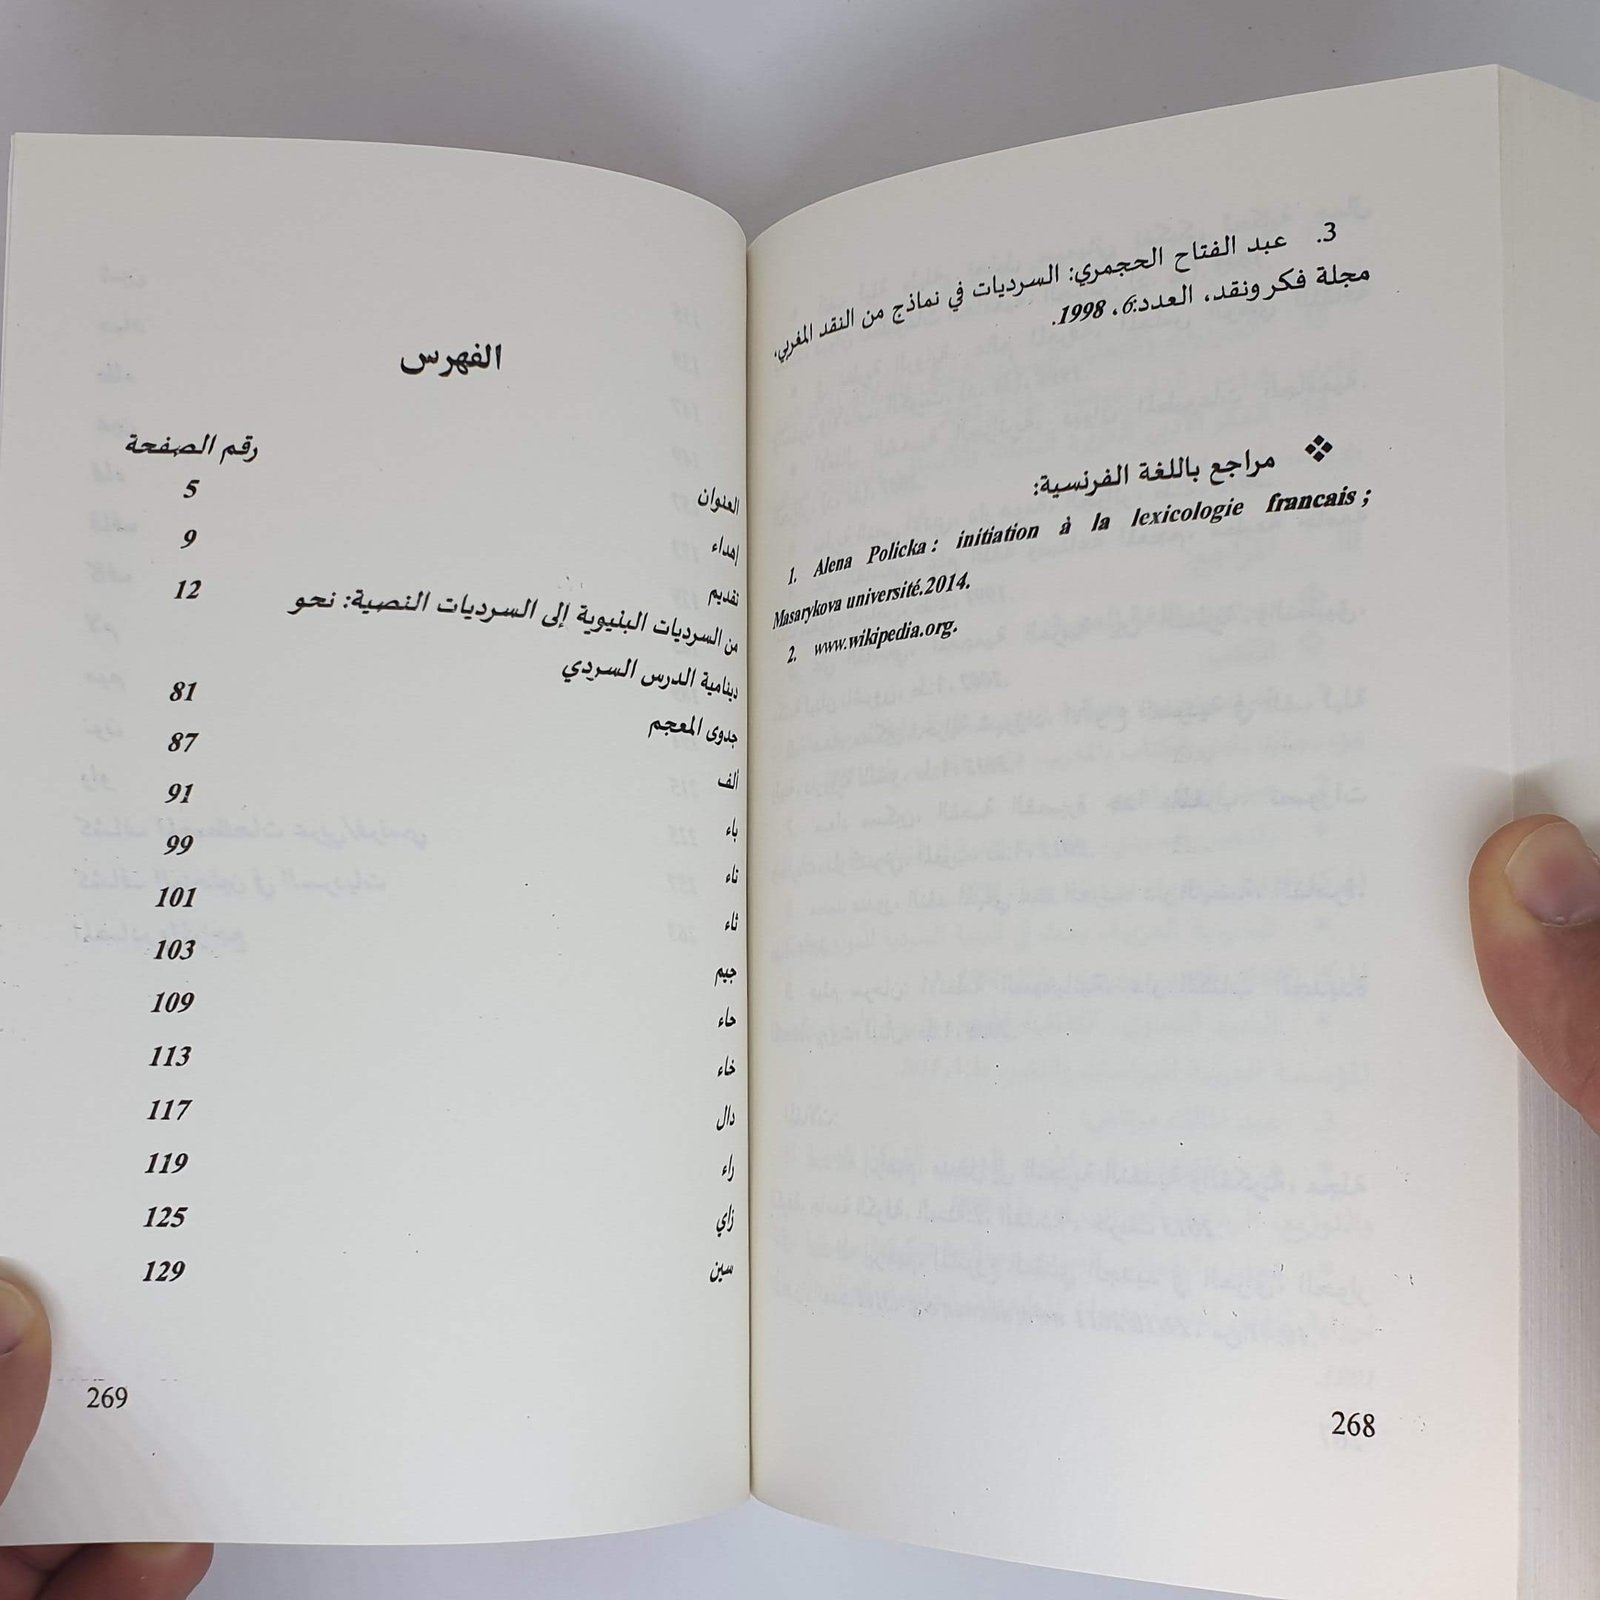 3. عبد الفتاح الحجمري: السرديات في نماذج من النقد المغربي،
مجلة فكر ونقد، العدد:6، 1998.
❖ مراجع باللغة الفرنسية:
1. Alena Policka : initiation à la lexicologie francais ;
Masarykova université.2014.
2. www.wikipedia.org.
268
الفهرس
رقم الصفحة
العنوان
5
إهداء
9
تقديم
12
من السرديات البنيوية إلى السرديات النصية: نحو
دينامية الدرس السردي
81
جدوى المعجم
87
ألف
91
باء
99
تاء
101
ثاء
103
جيم
109
حاء
113
خاء
117
دال
119
راء
125
زاي
129
سين
269